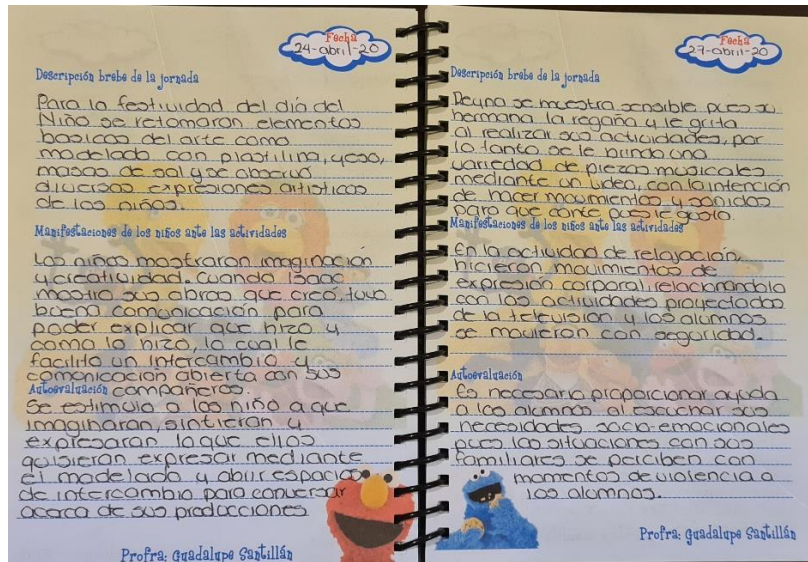 Fecha
24-abril-20
Descripción brebe de la jornada
Para la festividad del día del
Niño se retomaron elementos
basicos del arte como
modelado con plastilina, yeso,
masas de sal y se observó
diversas expresiones artisticas
de los niños.
Manifestaciones de los niños ante las actividades
Los niños mostraron imaginación
y creatividad. Cuando Isaac
mostro sus obras que creó tuvo
buena comunicación para
poder explicar que hizo y
como lo hizo, lo cual le
facilito un intercambio y
comunicación abierta con sus
Autoevaluación compañeros.
Se estimula a los niño a que
imaginaran, sintieran y
expresaran lo que ellos
quisieran expresar mediante
el modelado y abrir espacios
de intercambio para conversar
acerca de sus producciones
Profra: Guadalupe Santillán
Fecha
27-abril-20
Descripción brebe de la jornada
Reyna se muestra sensible pues su
hermana la regaña y le grita
al realizar sus actividades, por
lo tanto se le brindo una
variedad de piezas musicales
mediante un video, con la intención
de hacer movimientos y sonidos
para que cante pues le gusta.
Manifestaciones de los niños ante las actividades
En la actividad de relajación,
hicieron movimientos de
expresión corporal relacionandola
con las actividades proyectadas
de la television y los alumnos
se movieron con seguridad.
Autoevaluación
Es necesario proporcionar ayuda
a los alumnos al escuchar sus
necesidades socio-emocionales
pues las situaciones con sus
familiares se perciben con
momentos de violencia a
los alumnos.
Profra: Guadalupe Santillán